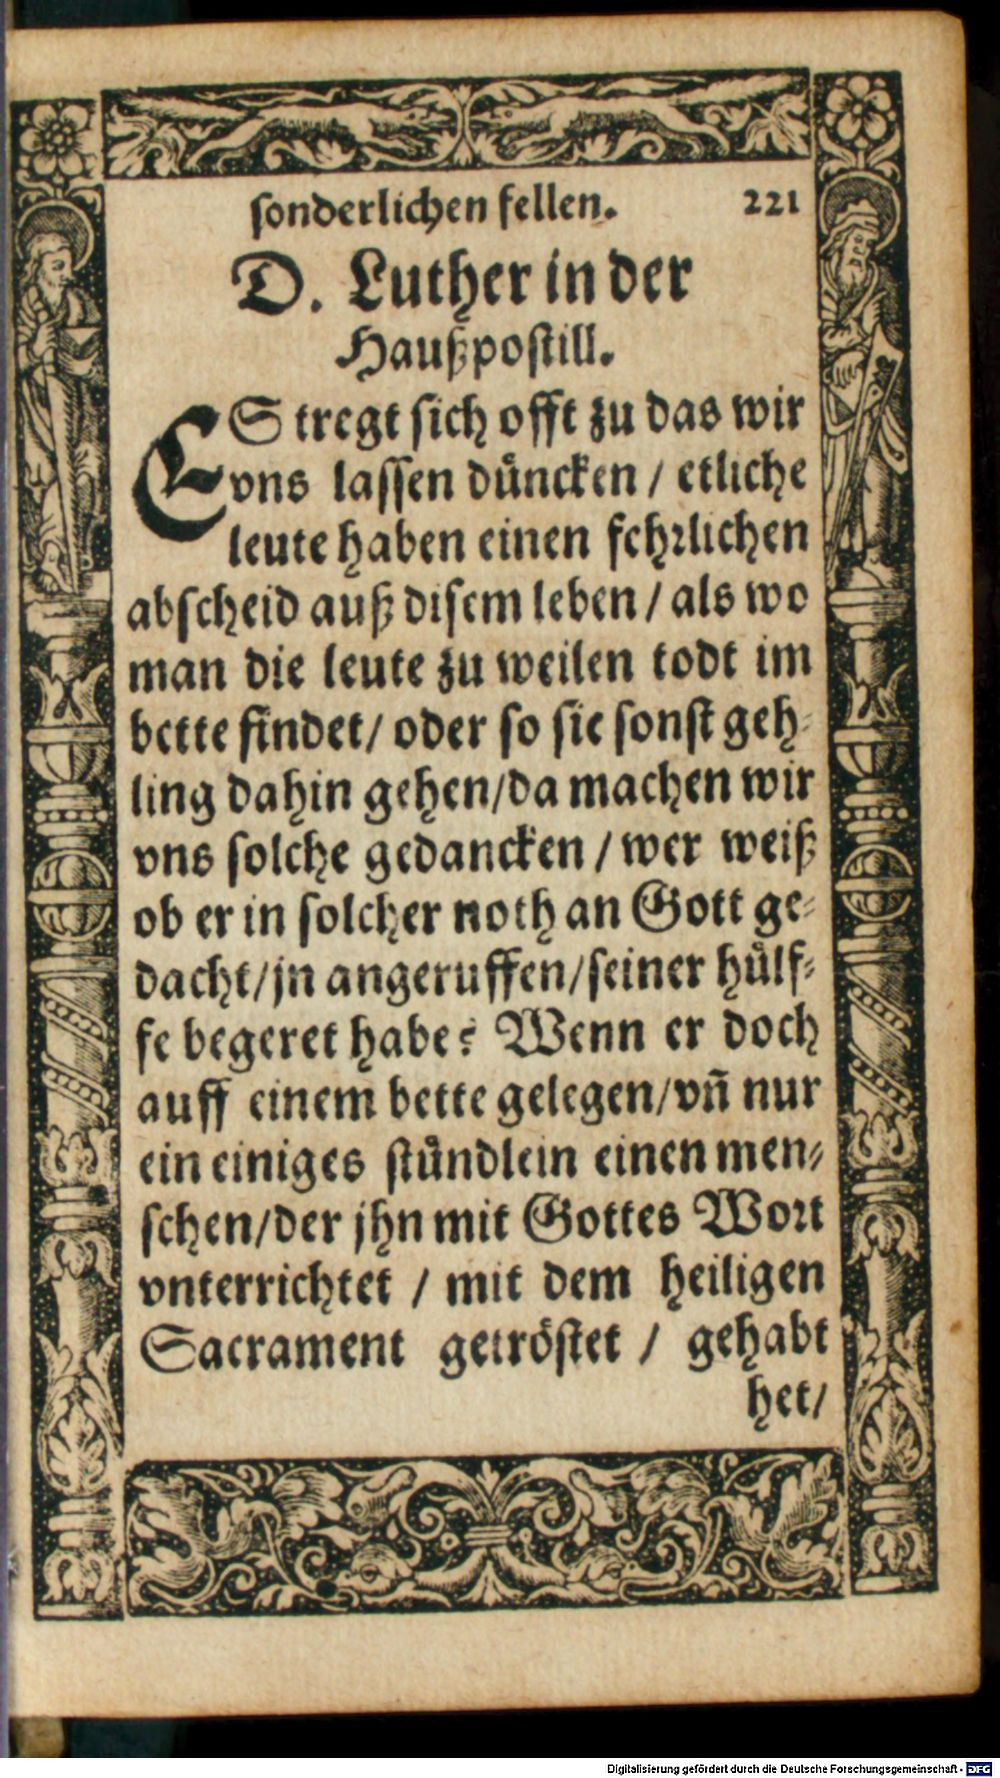 sonderlichen fellen. 221
D. Luther in der
Haußpostill.
ES tregt sich offt zu das wir
vns lassen düncken / etliche
leute haben einen fehrlichen
abscheid auß disem leben / als wo
man die leute zu weilen todt im
bette findet / oder so sie sonst geh-
ling dahin gehen / da machen wir
vns solche gedancken / wer weiß
ob er in solcher noth an Gott ge-
dacht / jn angeruffen / seiner hülf-
fe begeret habe? Wenn er doch
auff einem bette gelegen / vñ nur
ein einiges stündlein einen men-
schen / der jhn mit Gottes Wort
vnterrichtet / mit dem heiligen
Sacrament getröstet / gehabt
het /
Digitalisierung gefördert durch die Deutsche Forschungsgemeinschaft - DFG